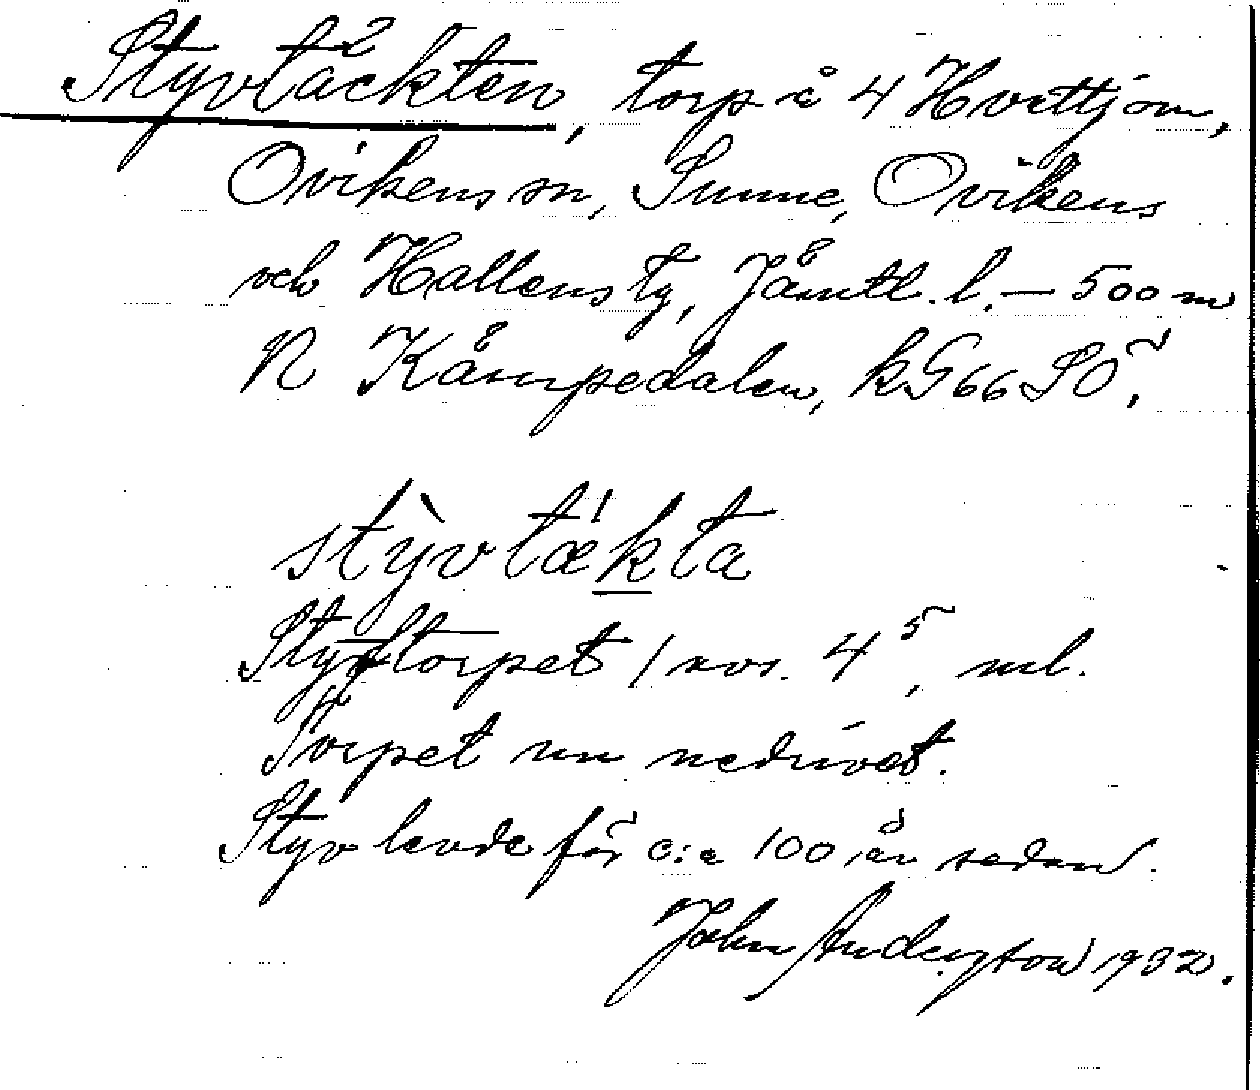 Styvtäckten, torp å 4 Hvittjom,
Ovikens sn, Sunne, Ovikens
och Hallens tg, Jämtl. l. — 500 m
N Kämpedalen, kG66 SO.
stỳvtæ̀kta
Styftorpet 1 avs. 4⁵, ml.
Torpet nu nedrivet.
Styv levde för c:a 100 år sedan.
John Anderston 1932.